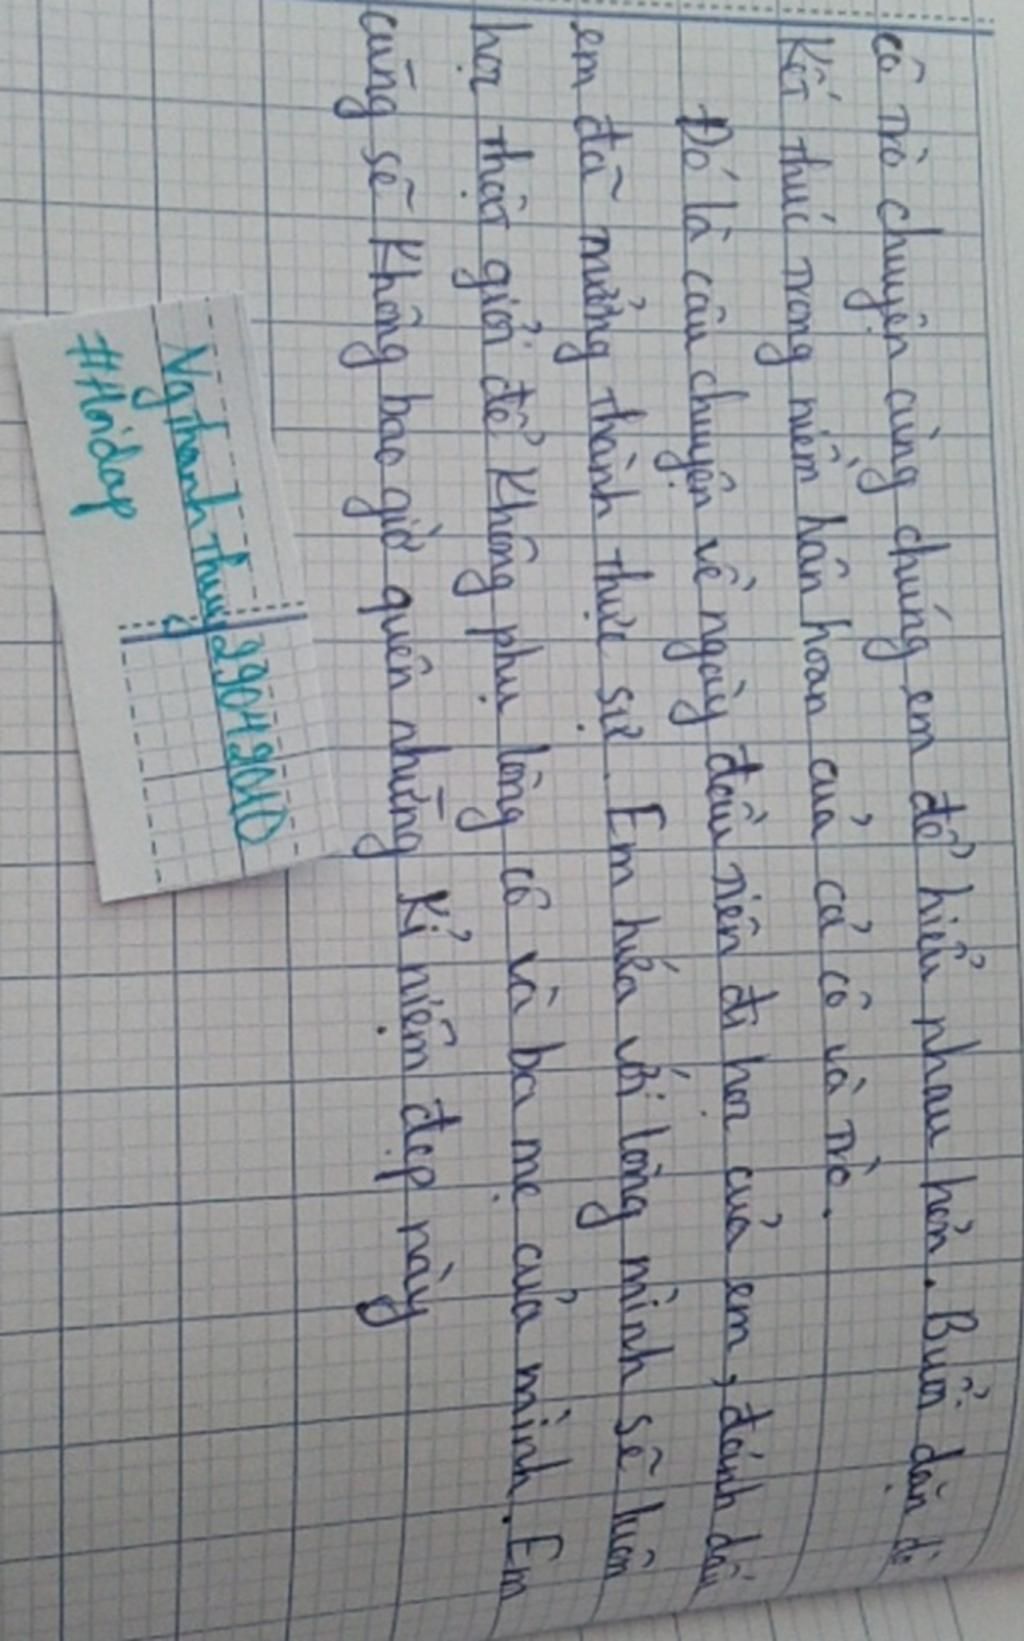 cô trò chuyện cùng chúng em để hiểu nhau hơn. Buổi dặn dò
kết thúc trong niềm hân hoan của cả cô và trò.
Đó là câu chuyện về ngày đầu tiên đi học của em, đánh dấu
em đã trưởng thành thực sự. Em hứa với lòng mình sẽ luôn
học thật giỏi để không phụ lòng cô và ba mẹ của mình. Em
cũng sẽ không bao giờ quên những kỉ niệm đẹp này
NgThanhThuy29042010
#Hoidap